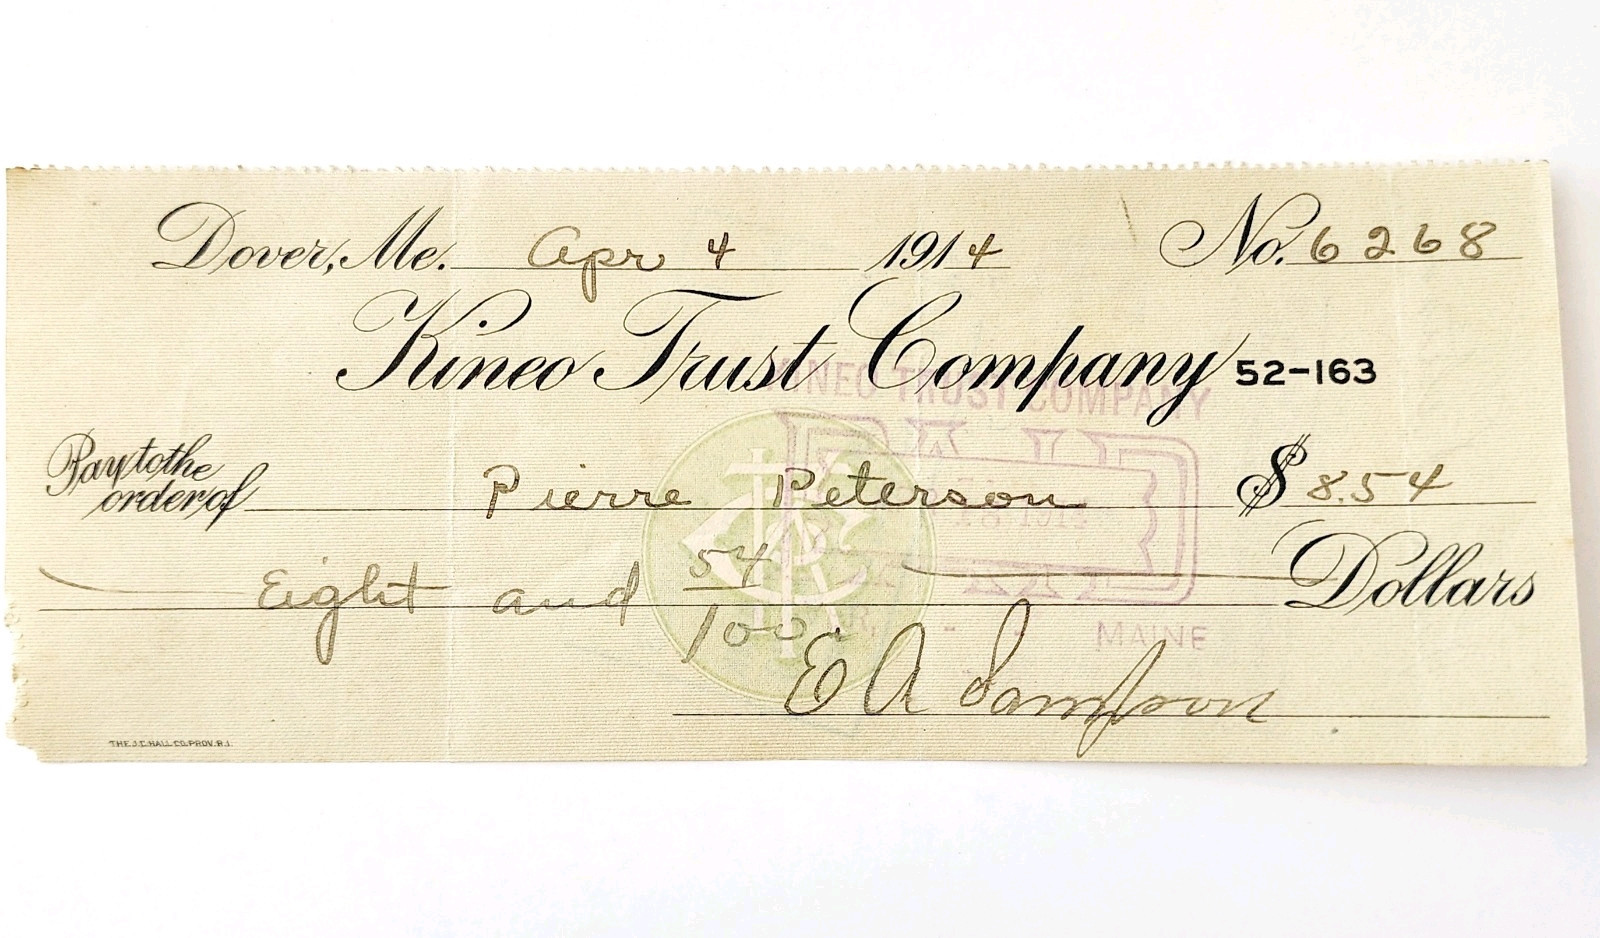 Dover, Me. Apr 4 1914 No. 6268
Kineo Trust Company 52-163
KINEO TRUST COMPANY
PAID
Pay to the
order of Pierre Peterson $ 8.54
Eight and 54/100 Dollars
MAINE
E A Sampson
THE J.C. HALL CO. PROV. R.I.